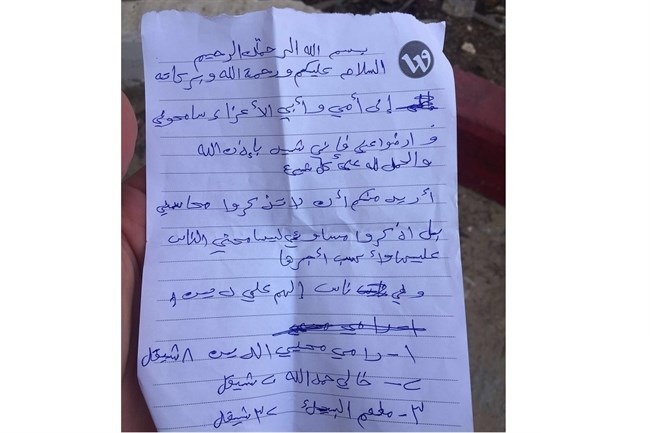 بسم الله الرحمن الرحيم
السلام عليكم ورحمة الله وبركاته
إلى أمي وأبي الأعزاء سامحوني
وارضوا عني فإني شهيد بإذن الله
والحمد لله على كل
أريد منكم أن لا تذكروا محاسني
بل اذكروا مساوئي ليسامحني الناس
عليها وأكسب أجرها
وفي ناس الهم علي دين
١- رامي محيي الدين ٨ شيقل
٢- خالي حمد الله ٢ شيقل
٣- مطعم شيقل